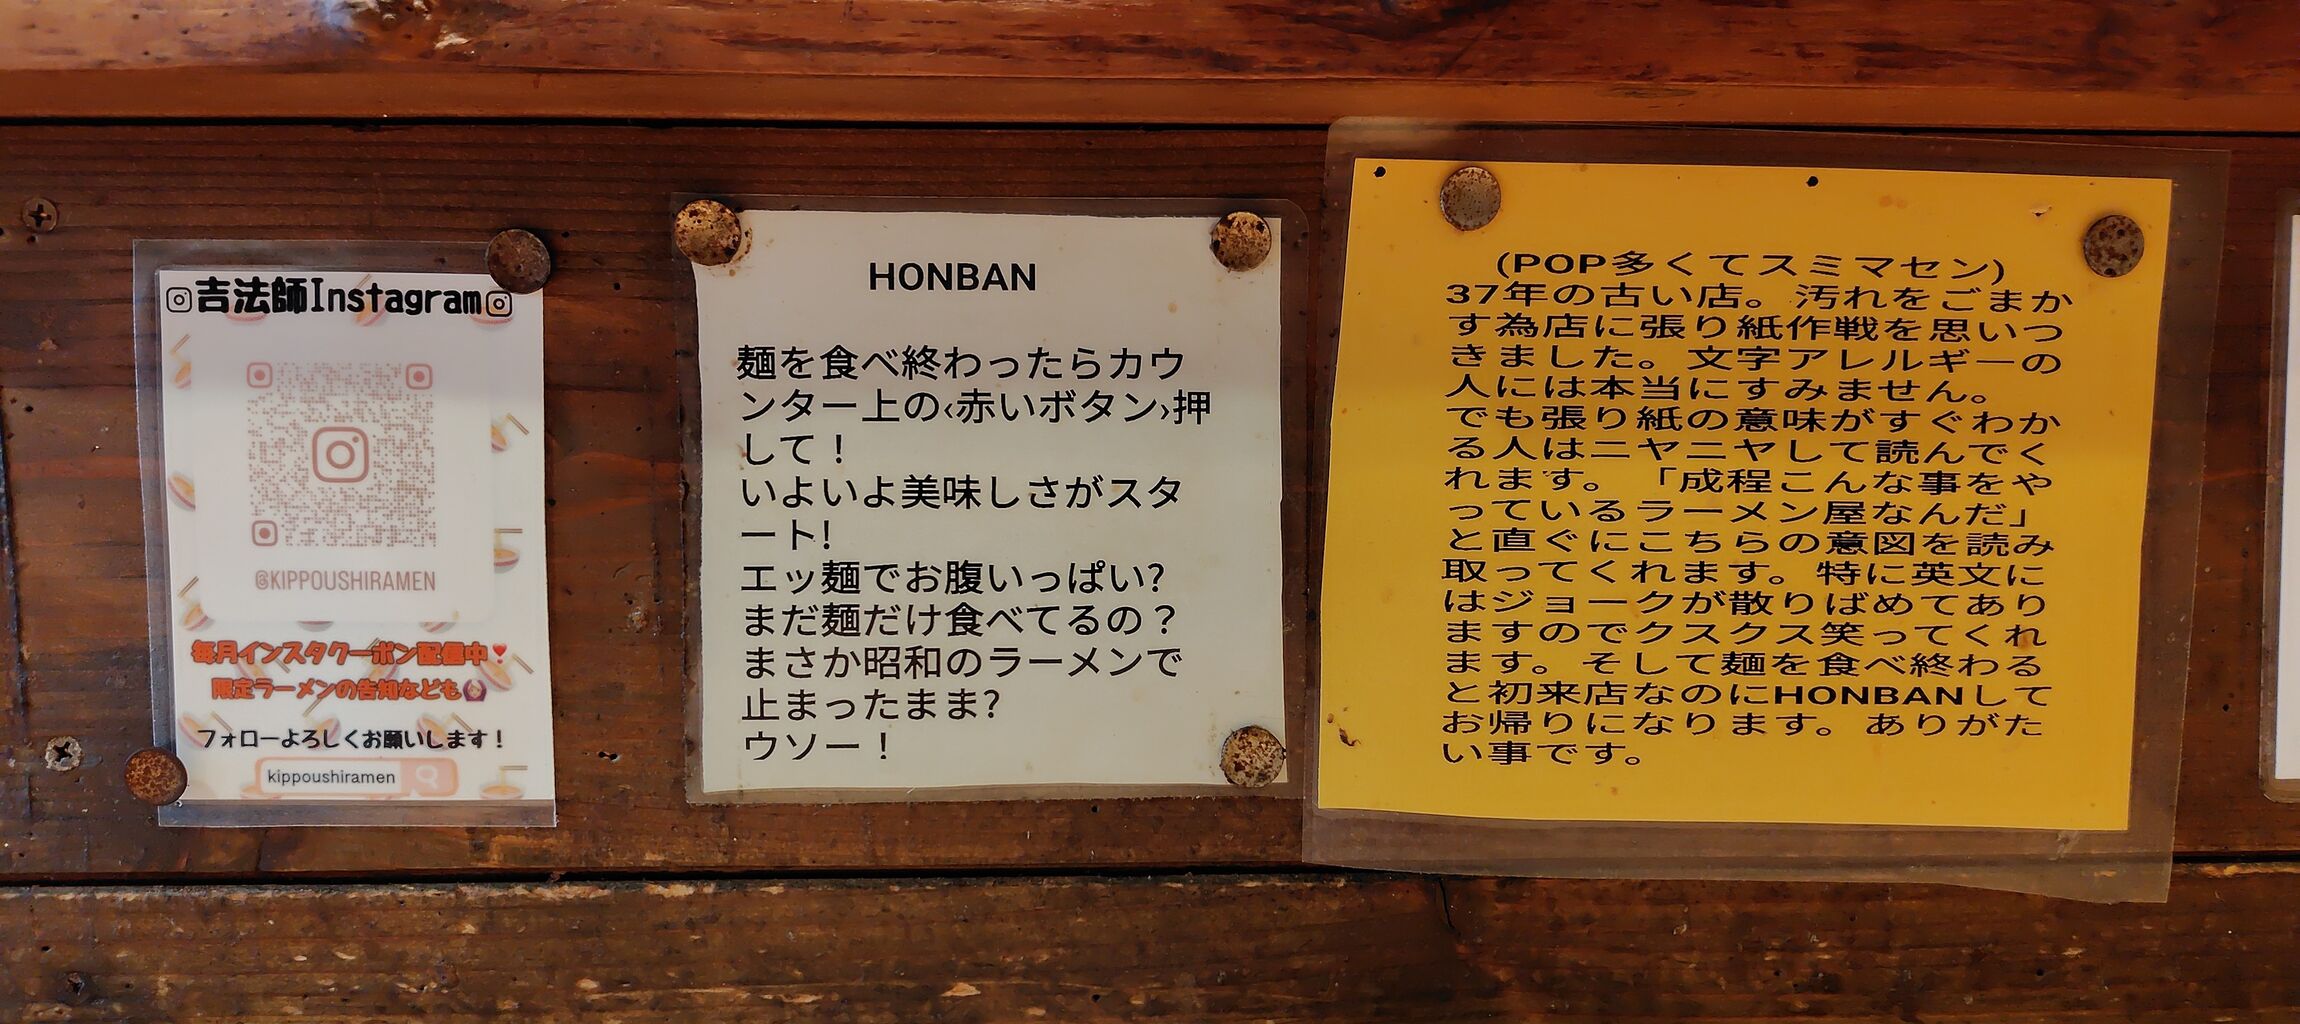 吉法師Instagram
@KIPPOUSHIRAMEN
毎月インスタクーポン配信中
限定ラーメンの告知なども
フォローよろしくお願いします！
kippoushiramen
HONBAN
麺を食べ終わったらカウ
ンター上の‹赤いボタン›押
して！
いよいよ美味しさがスタ
ート!
エッ麺でお腹いっぱい?
まだ麺だけ食べてるの？
まさか昭和のラーメンで
止まったまま?
ウソー！
(POP多くてスミマセン)
37年の古い店。汚れをごまか
す為店に張り紙作戦を思いつ
きました。文字アレルギーの
人には本当にすみません。
でも張り紙の意味がすぐわか
る人はニヤニヤして読んでく
れます。「成程こんな事をや
っているラーメン屋なんだ」
と直ぐにこちらの意図を読み
取ってくれます。特に英文に
はジョークが散りばめてあり
ますのでクスクス笑ってくれ
ます。そして麺を食べ終わる
と初来店なのにHONBANして
お帰りになります。ありがた
い事です。